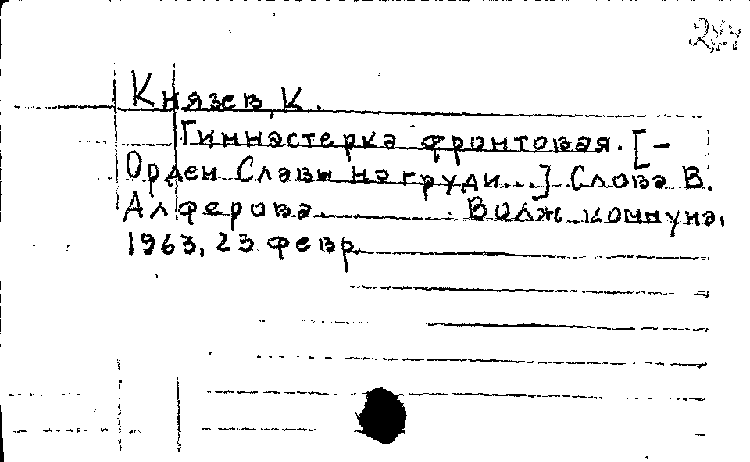 Князев, К.
Гимнастерка фронтовая. [-
Орден Славы на груди...] Слова В.
Алферова. Волж. коммуна,
1963, 23 февр.